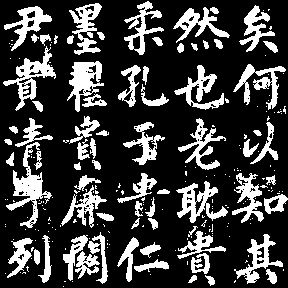 矣何以知其
然也老耽貴
柔孔子貴仁
墨翟貴廉關
尹貴清子列